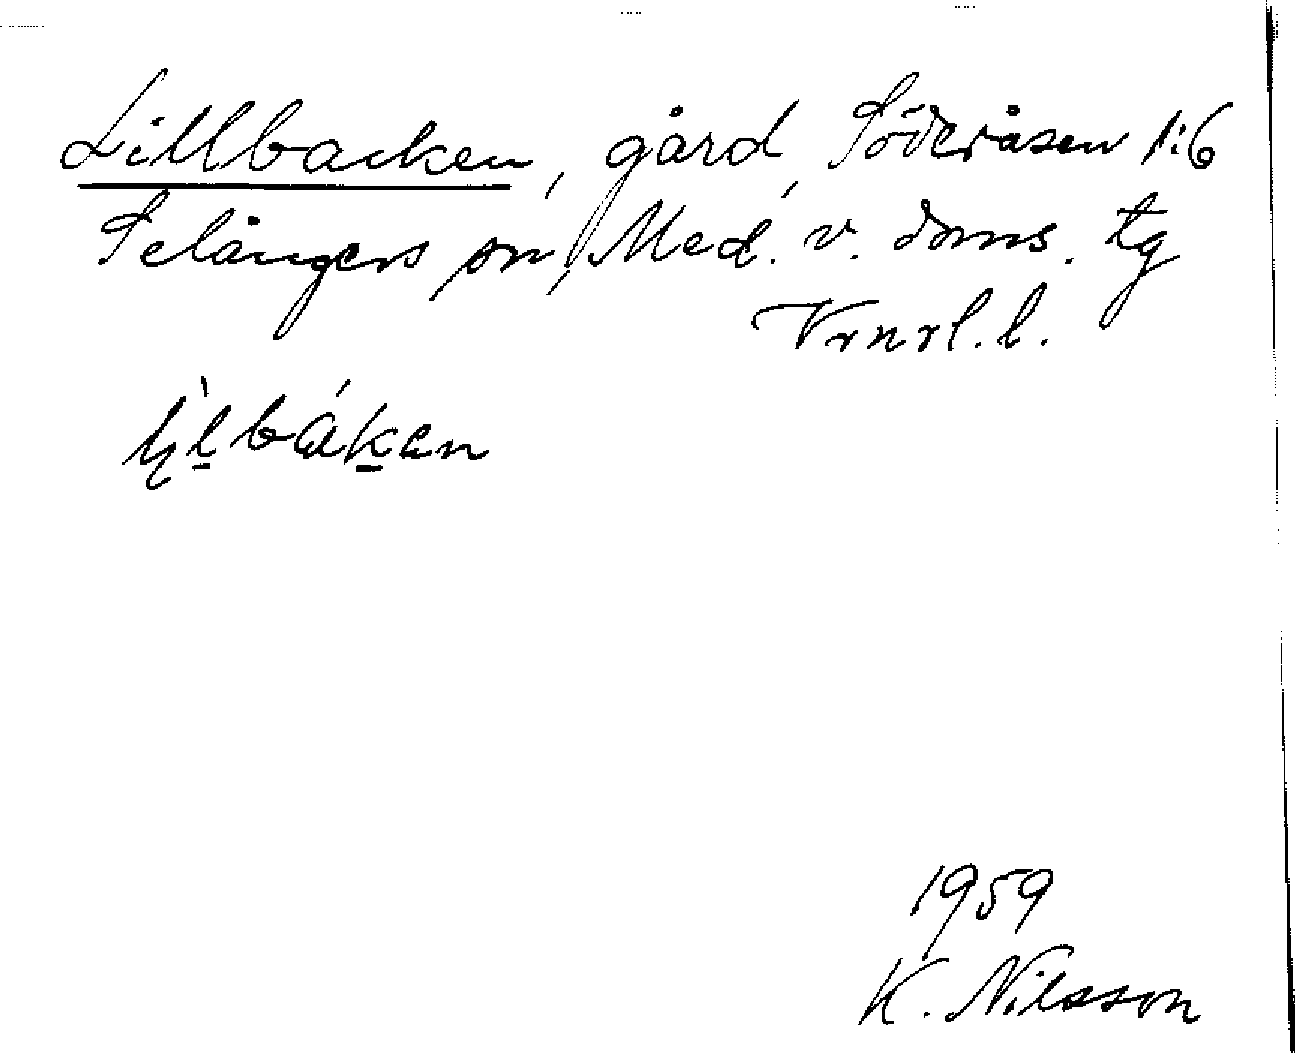 Lillbacken, gård, Söderåsen 1:6
Selångers sn, Med. v. doms. tg
Vrnrl.l.
lìl̲bák̲en
1959
K. Nilsson